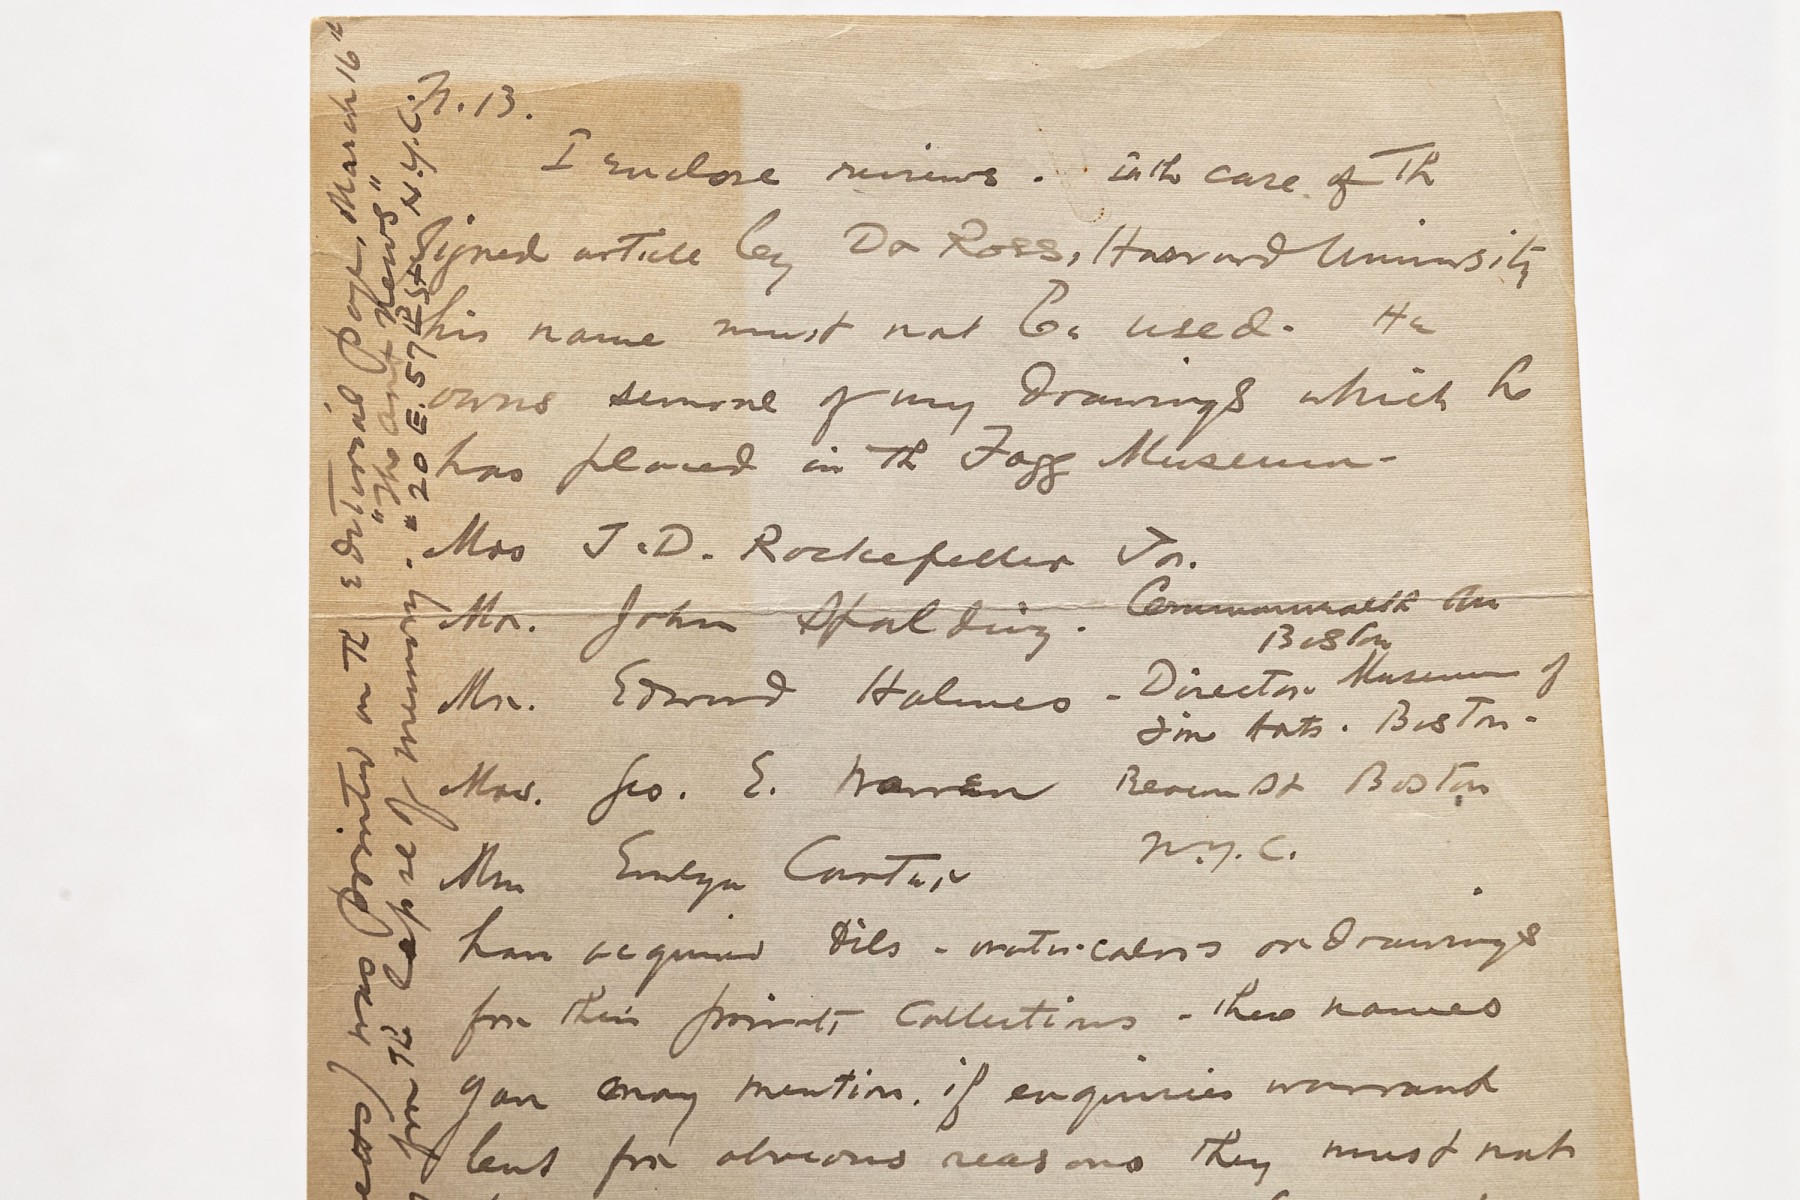 N. 13.
I enclose reviews. in the case of The
signed article by Dr Ross, Harvard University
his name must not be used. He
owns several of my drawings which he
has placed in The Fogg Museum -
Mrs J. D. Rockefeller Jr.
Mr. John Spalding. Commonwealth Ave
Boston
Mr. Edward Holmes - Director Museum of
Fine Arts. Boston -
Mrs. Geo. E. Warren Beacon St Boston
Mrs Carter N.Y.C.
have acquired Oils - water-colors or drawings
for their private Collections - these names
you may mention. if enquiries warrant
but for obvious reasons They must not
was printed on The Editorial page, March 16th
from The lapse of memory. "The Art News"
= 20 E. 57th St. N.Y.C.